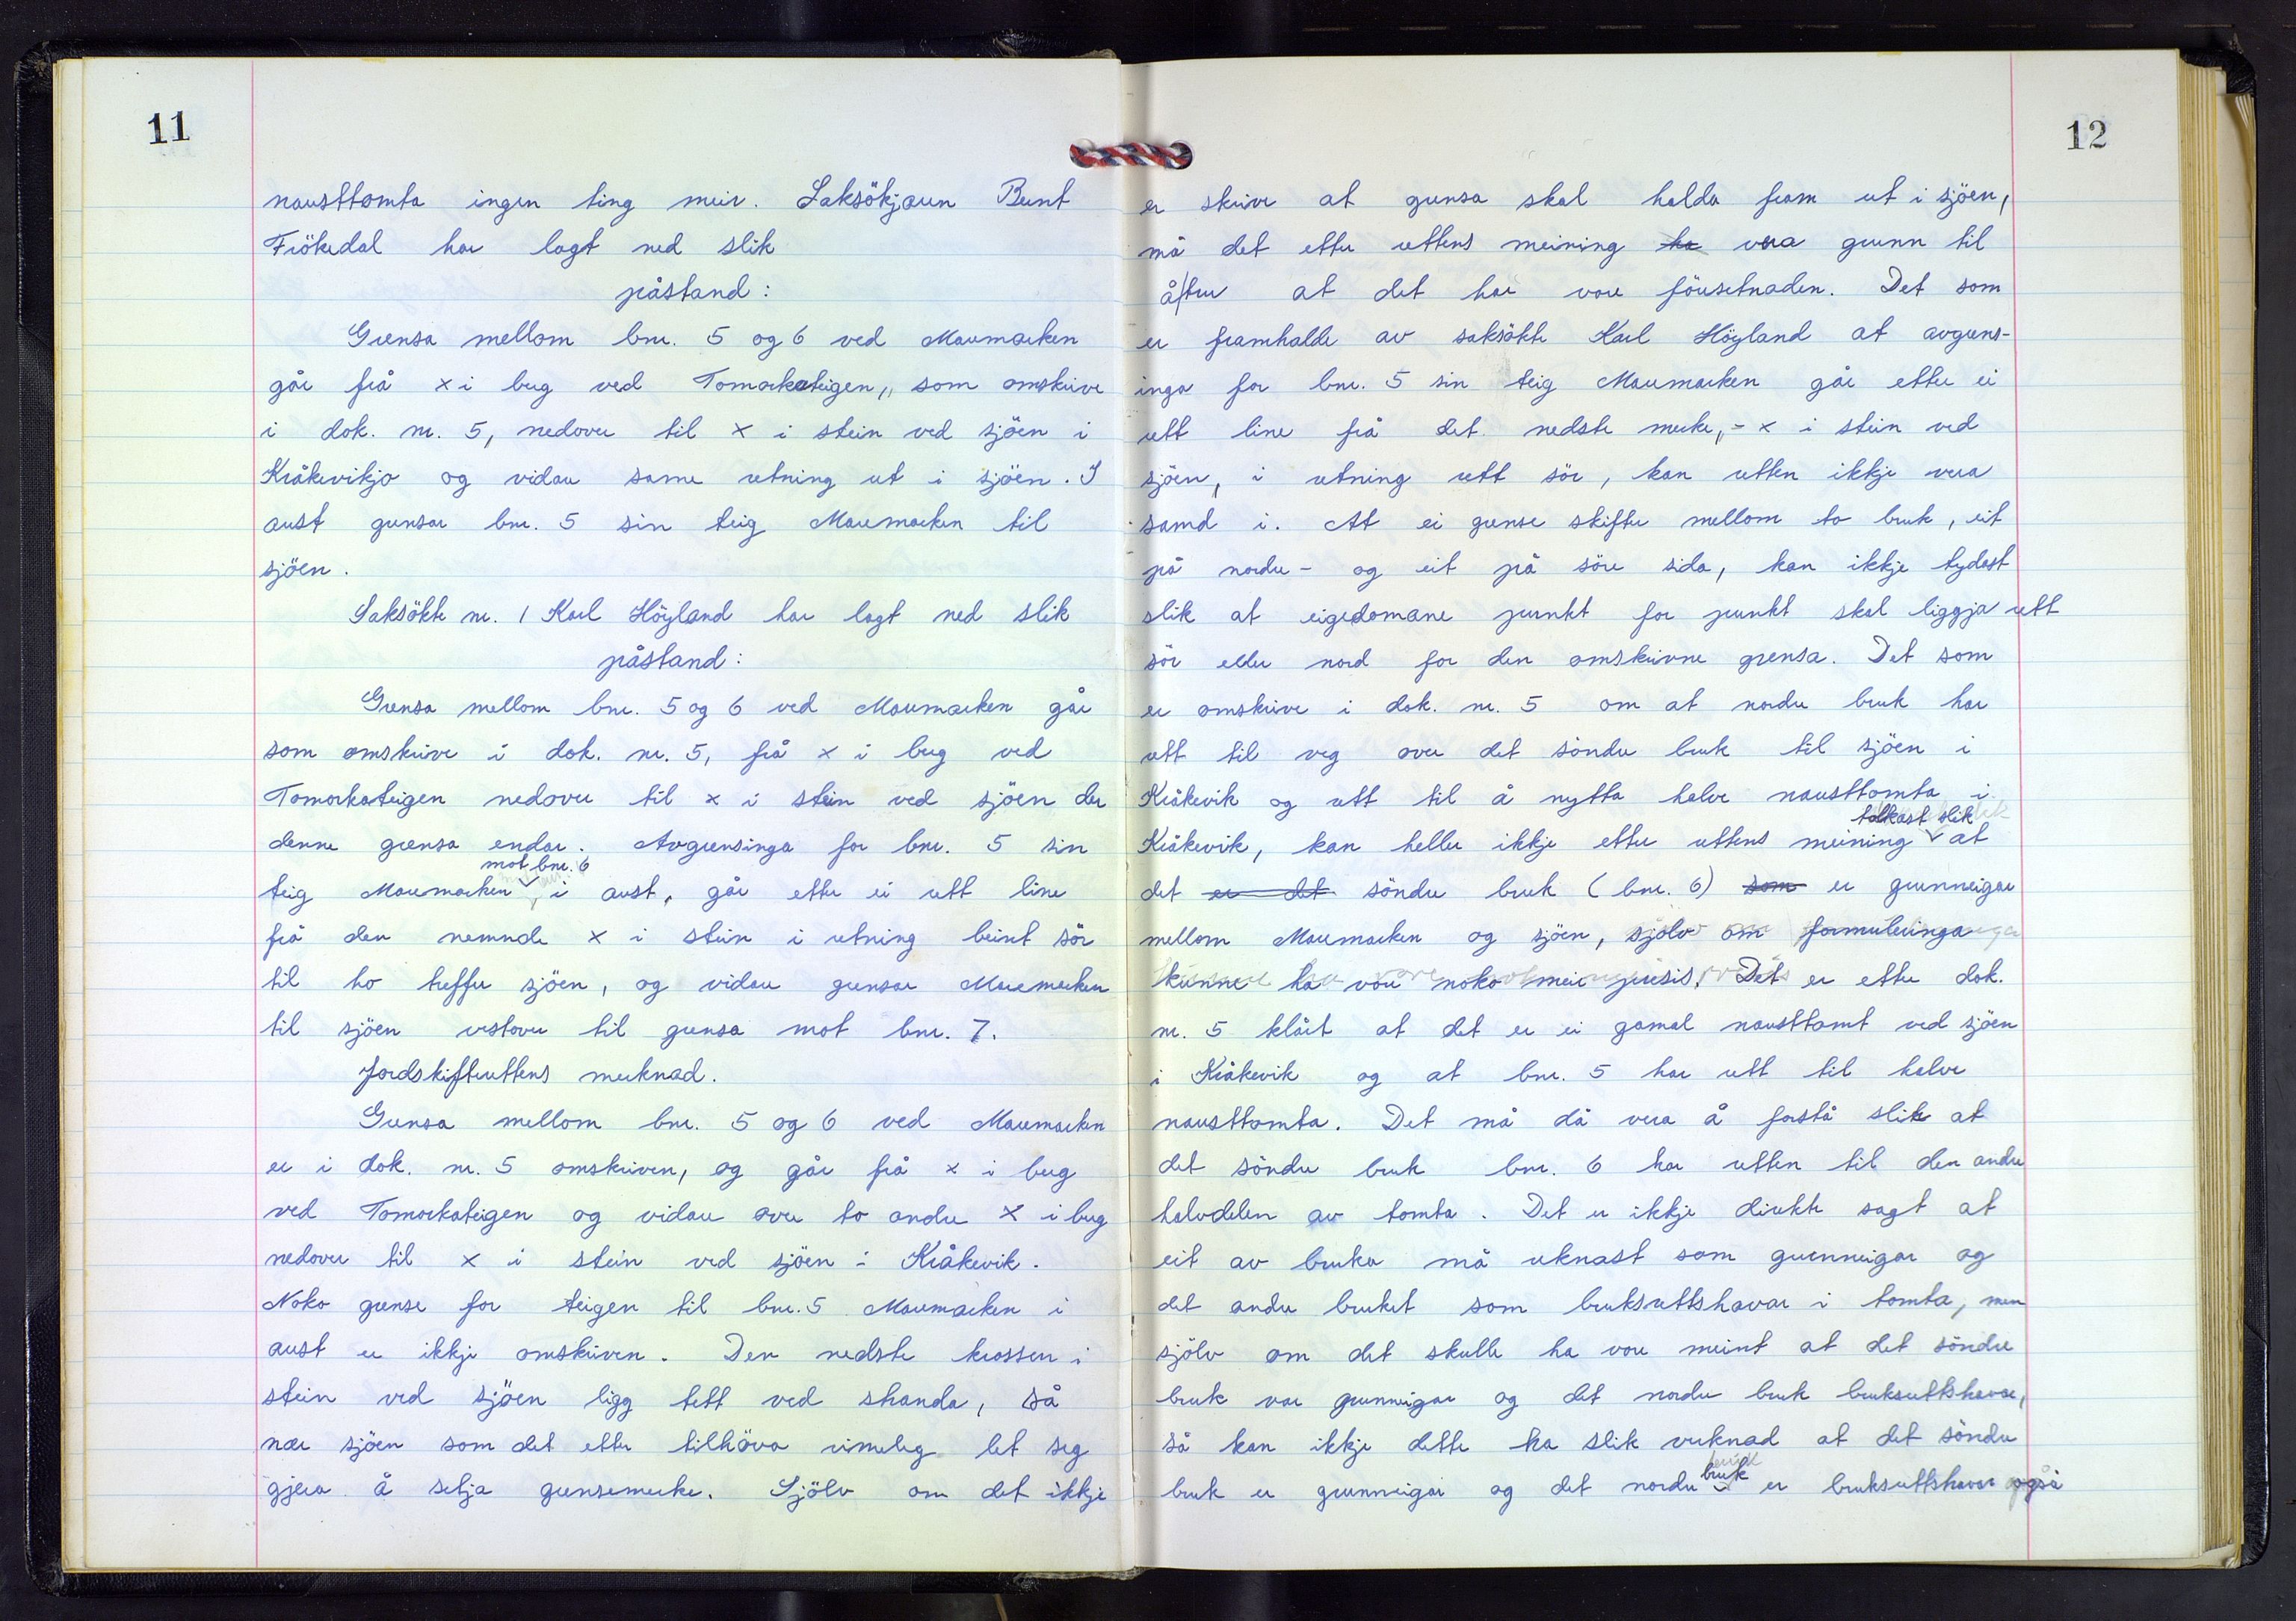 11
nausttomta ingen ting meir. Saksökjaren Bernt
Frökedal har lagt ned slik
påstand:
Grensa mellom bnr. 5 og 6 ved Maremarken
går frå x i berg ved Tomarkateigen, som omskrive
i dok. nr. 5, nedover til x i stein ved sjöen i
Kråkevikjo og vidare same retning ut i sjöen. I
aust grensar bnr. 5 sin teig Maremarken til
sjöen.
Saksökte nr. 1 Karl Höyland har lagt ned slik
påstand:
Grensa mellom bnr. 5 og 6 ved Maremarken går
som omskrive i dok. nr. 5, frå x i berg ved
Tomarkateigen nedover til x i stein ved sjöen der
denne grensa endar. Avgrensinga for bnr. 5 sin
mot bnr. 6
teig Maremarken, i aust, går etter ei rett line
frå den nemnde x i stein i retning beint sör
til ho treffer sjöen, og vidare grensar Maremarken
til sjöen vestover til grensa mot bnr. 7.
Jordskifterettens merknad.
Grensa mellom bnr. 5 og 6 ved Maremarken
er i dok. nr. 5 omskriven, og går frå x i berg
ved Tomarkateigen og vidare over to andre x i berg
nedover til x i stein ved sjöen i Kråkevik.
Noko grense for teigen til bnr. 5 Maremarken i
aust er ikkje omskriven. Den nedste krossen i
stein ved sjöen ligg tett ved stranda, så
nær sjöen som det etter tilhöva rimeleg let seg
gjera å setja grensemerke. Sjölv om det ikkje
12
er skrive at grensa skal halda fram ut i sjöen,
må det etter rettens meining ha vera grunn til
å tru at det har vore föresetnaden. Det som
er framhalde av saksökte Karl Höyland at avgrens-
inga for bnr. 5 sin teig Maremarken går etter ei
rett line frå det nedste merke, - x i stein ved
sjöen, i retning rett sör, kan retten ikkje vera
samd i. At ei grense skifter mellom to bruk, eit
på nordre - og eit på söre sida, kan ikkje tydast
slik at eigedomane punkt for punkt skal liggja rett
sör eller nord for den omskrivne grensa. Det som
er omskrive i dok. nr. 5 om at nordre bruk har
rett til veg over det söndre bruk til sjöen i
Kråkevik og rett til å nytta halve nausttomta i
tolkast slik
Kråkevik, kan heller ikkje etter rettens meining at
det er det söndre bruk (bnr. 6) som er grunneigar
mellom Maremarken og sjöen, sjölv om formuleringa
kunne ha vore noko meir presis. Det er etter dok.
nr. 5 klårt at det er ei gamal nausttomt ved sjöen
i Kråkevik og at bnr. 5 har rett til halve
nausttomta. Det må då vera å forstå slik at
det söndre bruk bnr. 6 har retten til den andre
halvdelen av tomta. Det er ikkje direkte sagt at
eit av bruka må reknast som grunneigar og
det andre bruket som bruksrettshavar i tomta, men
sjölv om det skulle ha vore meint at det söndre
bruk var grunneigar og det nordre bruk bruksrettshavar,
så kan ikkje dette ha slik verknad at det söndre
bruk
bruk er grunneigar og det nordre er bruksrettshavar også